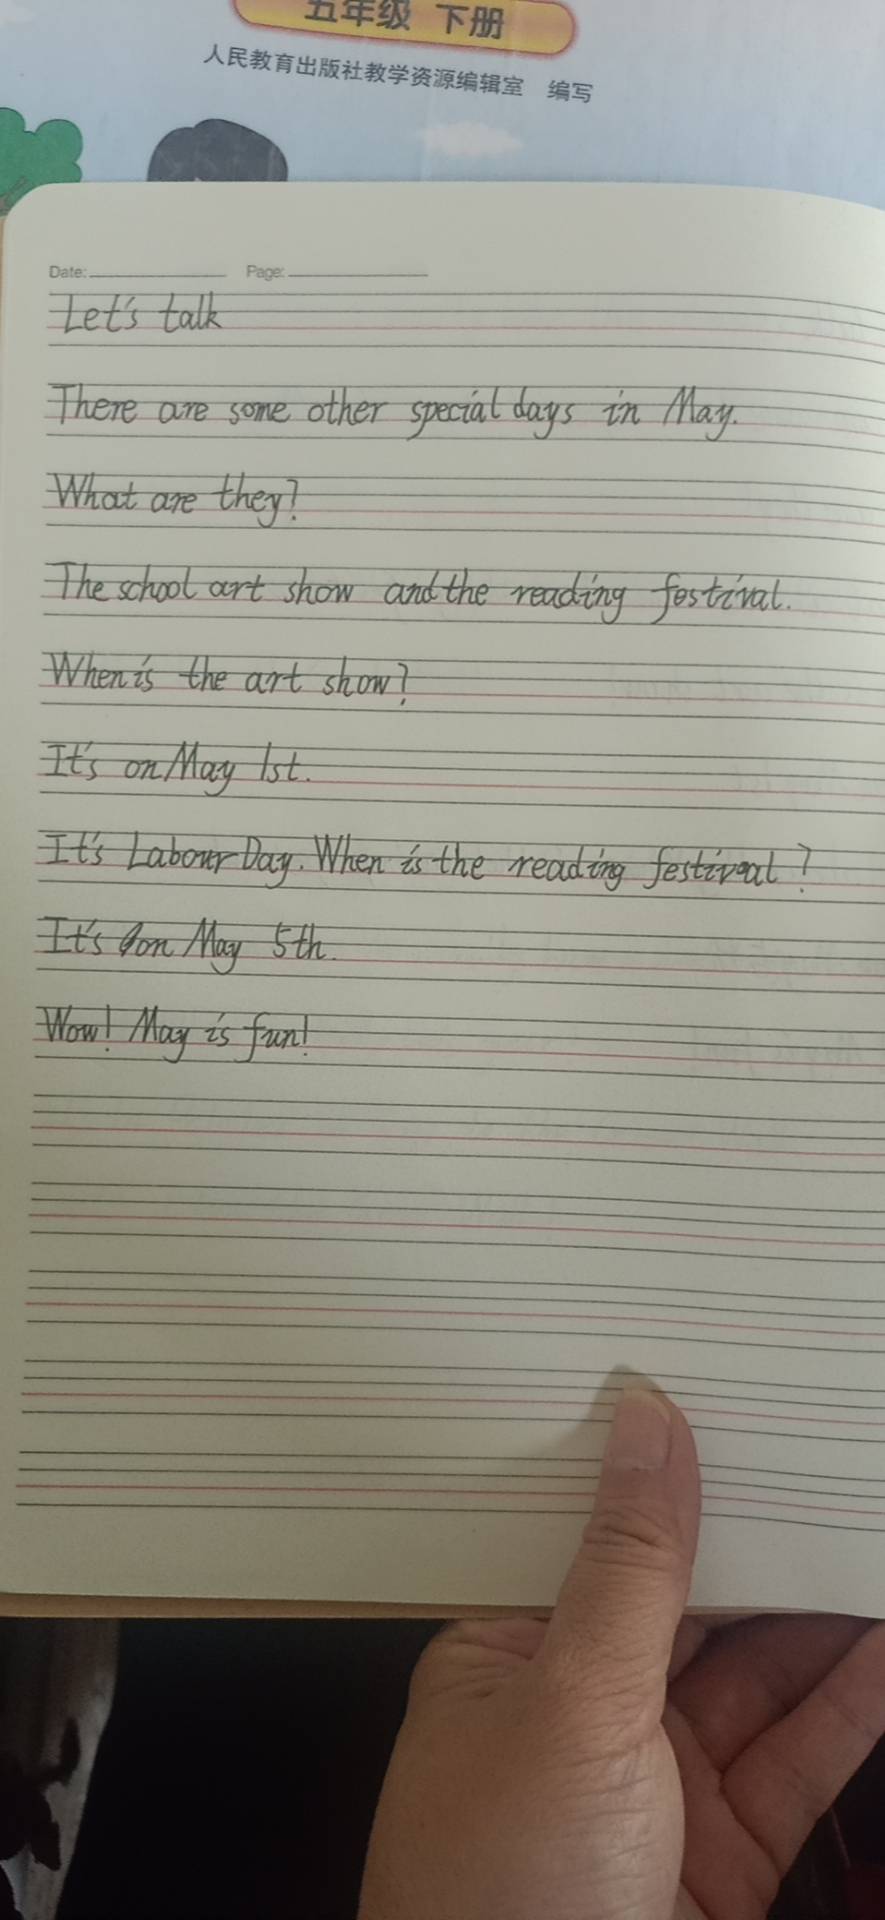 五年级 下册
人民教育出版社教学资源编辑室 编写
Date: Page:
Let's talk
There are some other special days in May.
What are they?
The school art show and the reading festival.
When is the art show?
It's on May 1st.
It's Labour Day. When is the reading festival?
It's on May 5th.
Wow! May is fun!